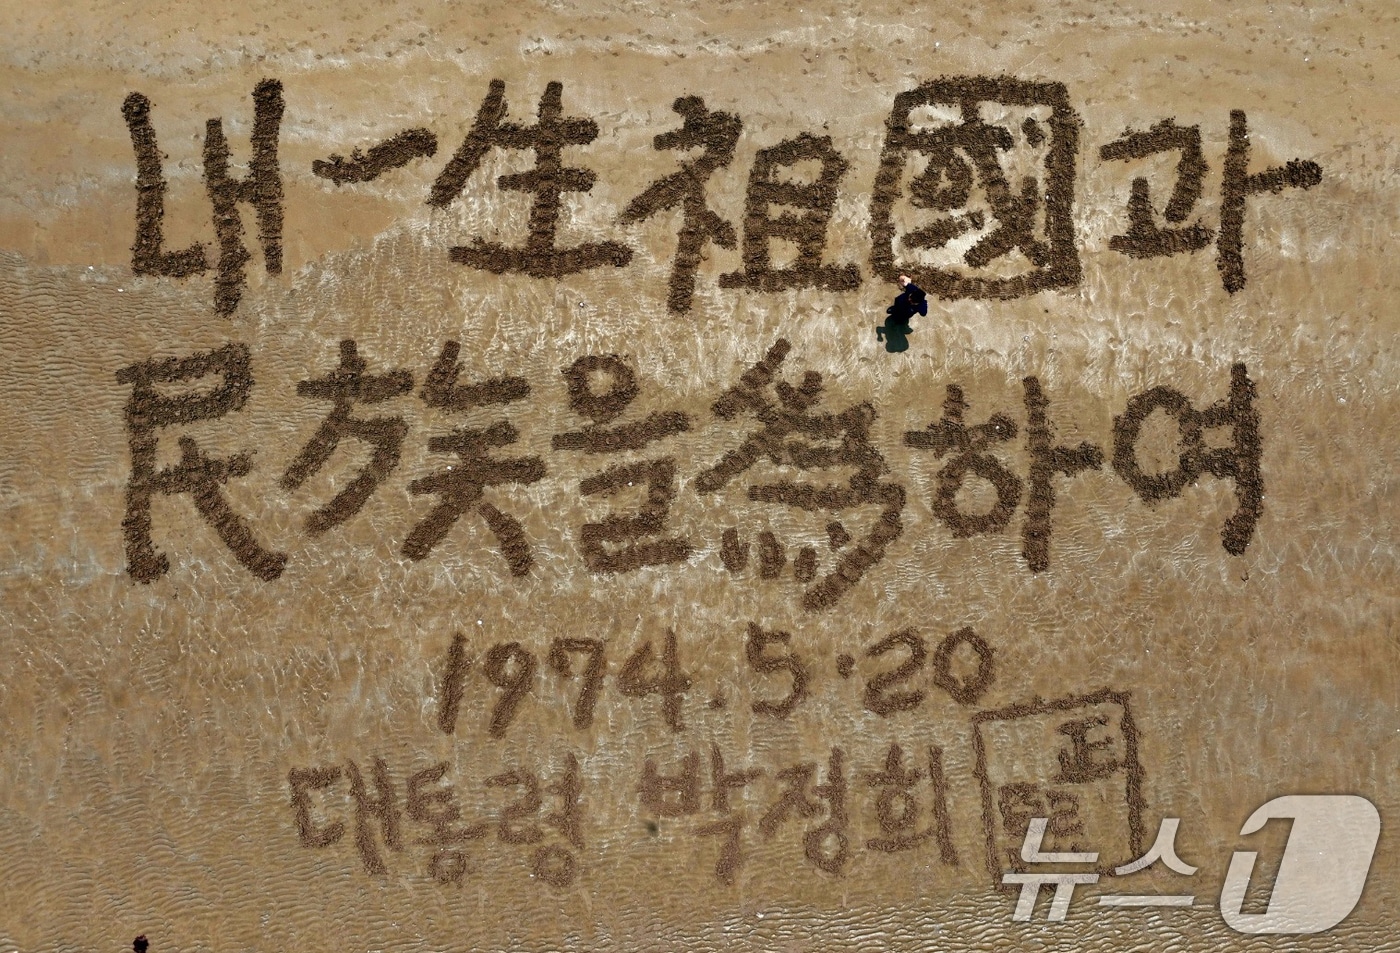 내 一生 祖國과
民族을 爲하여
1974.5.20
대통령 박정희
뉴스1